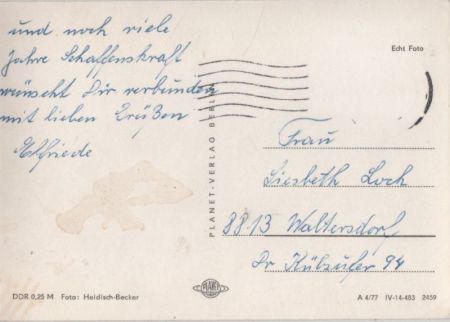 und noch viele
Jahre Schaffenskraft
wünscht Dir verbunden
mit lieben Grüßen
Elfriede
Echt Foto
PLANET-VERLAG BERLIN
Frau
Liesbeth Loch
8813 Waltersdorf
Dr Külzufer 94
DDR 0,25 M Foto: Heidisch-Becker
PLANET
A 4/77 IV-14-483 2459